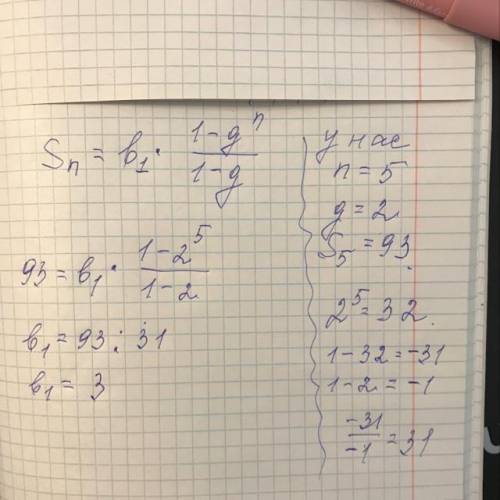 Sₙ = b₁ · (1-gⁿ)/(1-g)
93 = b₁ · (1-2⁵)/(1-2)
b₁ = 93 : 31
b₁ = 3
у нас
n = 5
g = 2
S₅ = 93.
2⁵ = 32.
1-32 = -31
1-2 = -1
-31/-1 = 31